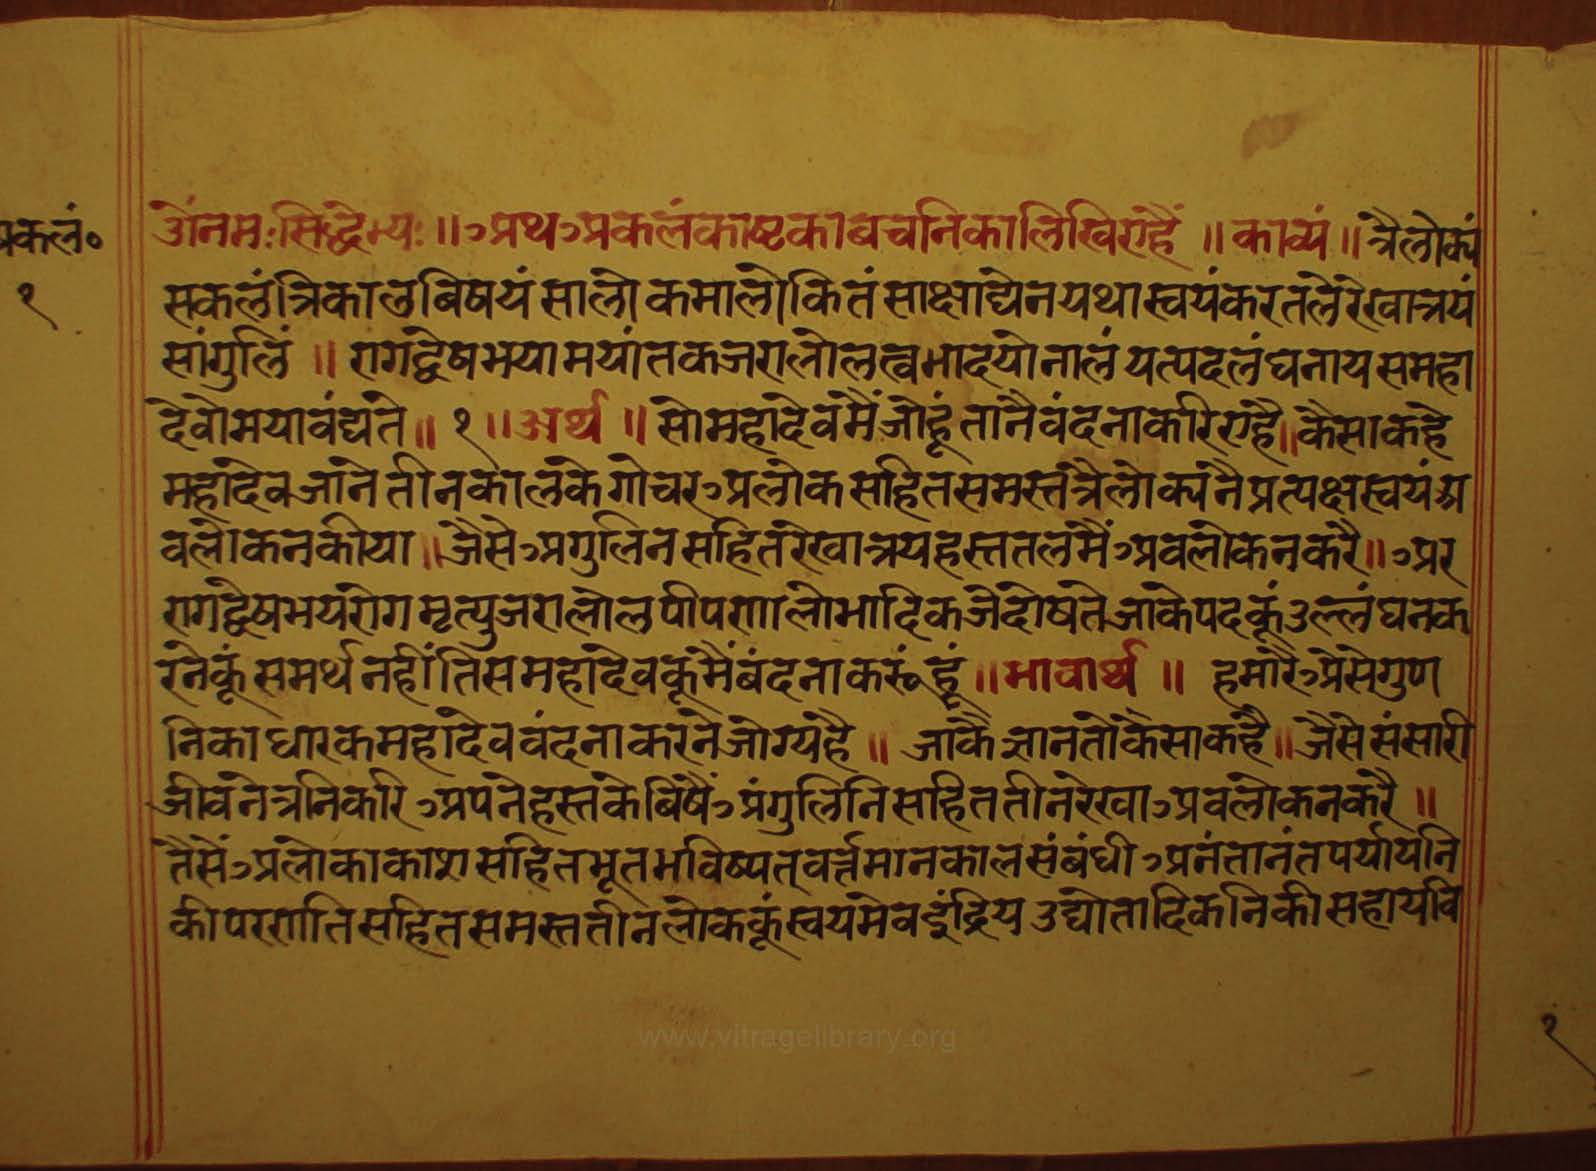 अकलं०
१
ओंनमःसिद्धेभ्यः॥अथअकलंकाष्टकाबचनिकालिखिएहैं॥काव्यं॥त्रैलोक्यं
सकलंत्रिकालबिषयंसालोकमालोकितंसाक्षाद्येनयथास्वयंकरतलेरेखात्रयं
सांगुलिं॥रागद्वेषभयामयांतकजरालोलत्वभादयोनालंयत्पदलंघनायसमहा
देवोमयावंद्यते॥१॥अर्थ॥सोमहादेवमैंजोहूंतानैवंदनाकरिएहै॥कैसाकहे
महादेवजानेतीनकालकेगोचरअलोकसहितसमस्तत्रैलोक्यनैप्रत्यक्षस्वयंअ
वलोकनकीया॥जैसेअगुलिनसहितरेखात्रयहस्ततलमैंअवलोकनकरै॥अर
रागद्वेषभयरोगमृत्युजरालोलपीपणालोभादिकजेदोषतेजाकेपदकूंउल्लंघनक
रनेकूंसमर्थनहींतिसमहादेवकूंमैंबंदनाकरूंहूं॥भावार्थ॥हमारैअैसेगुण
निकाधारकमहादेववंदनाकरनेजोग्यहै॥जाकैज्ञानतोकैसाकहै॥जैसेसंसारी
जीवनेत्रनिकरिअपनेहस्तकेबिषैंअंगुलिनिसहिततीनरेखाअवलोकनकरै॥
तैसेंअलोकाकाशसहितभूतभविष्यत्वर्त्तमानकालसंबंधीअनंतानंतपर्यायनि
कीपरणतिसहितसमस्ततीनलोककूंस्वयमेवइंद्रियउद्योतादिकनिकीसहायवि
१
www.vitragelibrary.org